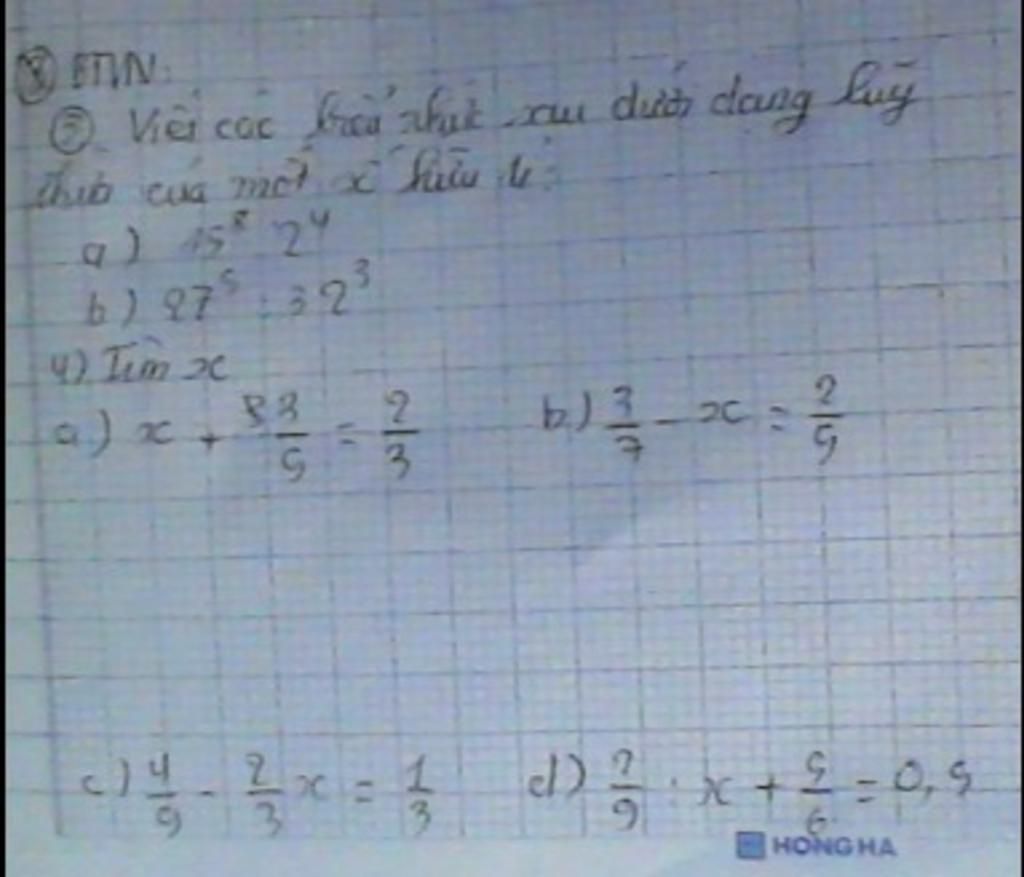 8 BTVN:
3 Viết các biểu thức sau dưới dạng luỹ
thừa của một số hữu tỉ:
a) 15⁸ 2⁴
b) 27⁵ : 32³
4) Tìm x
a) x + 3/5 = 2/3 b) 3/7 - x = 2/5
c) 4/9 - 2/3 x = 1/3 d) 2/9 : x + 5/6 = 0,5
HONG HA